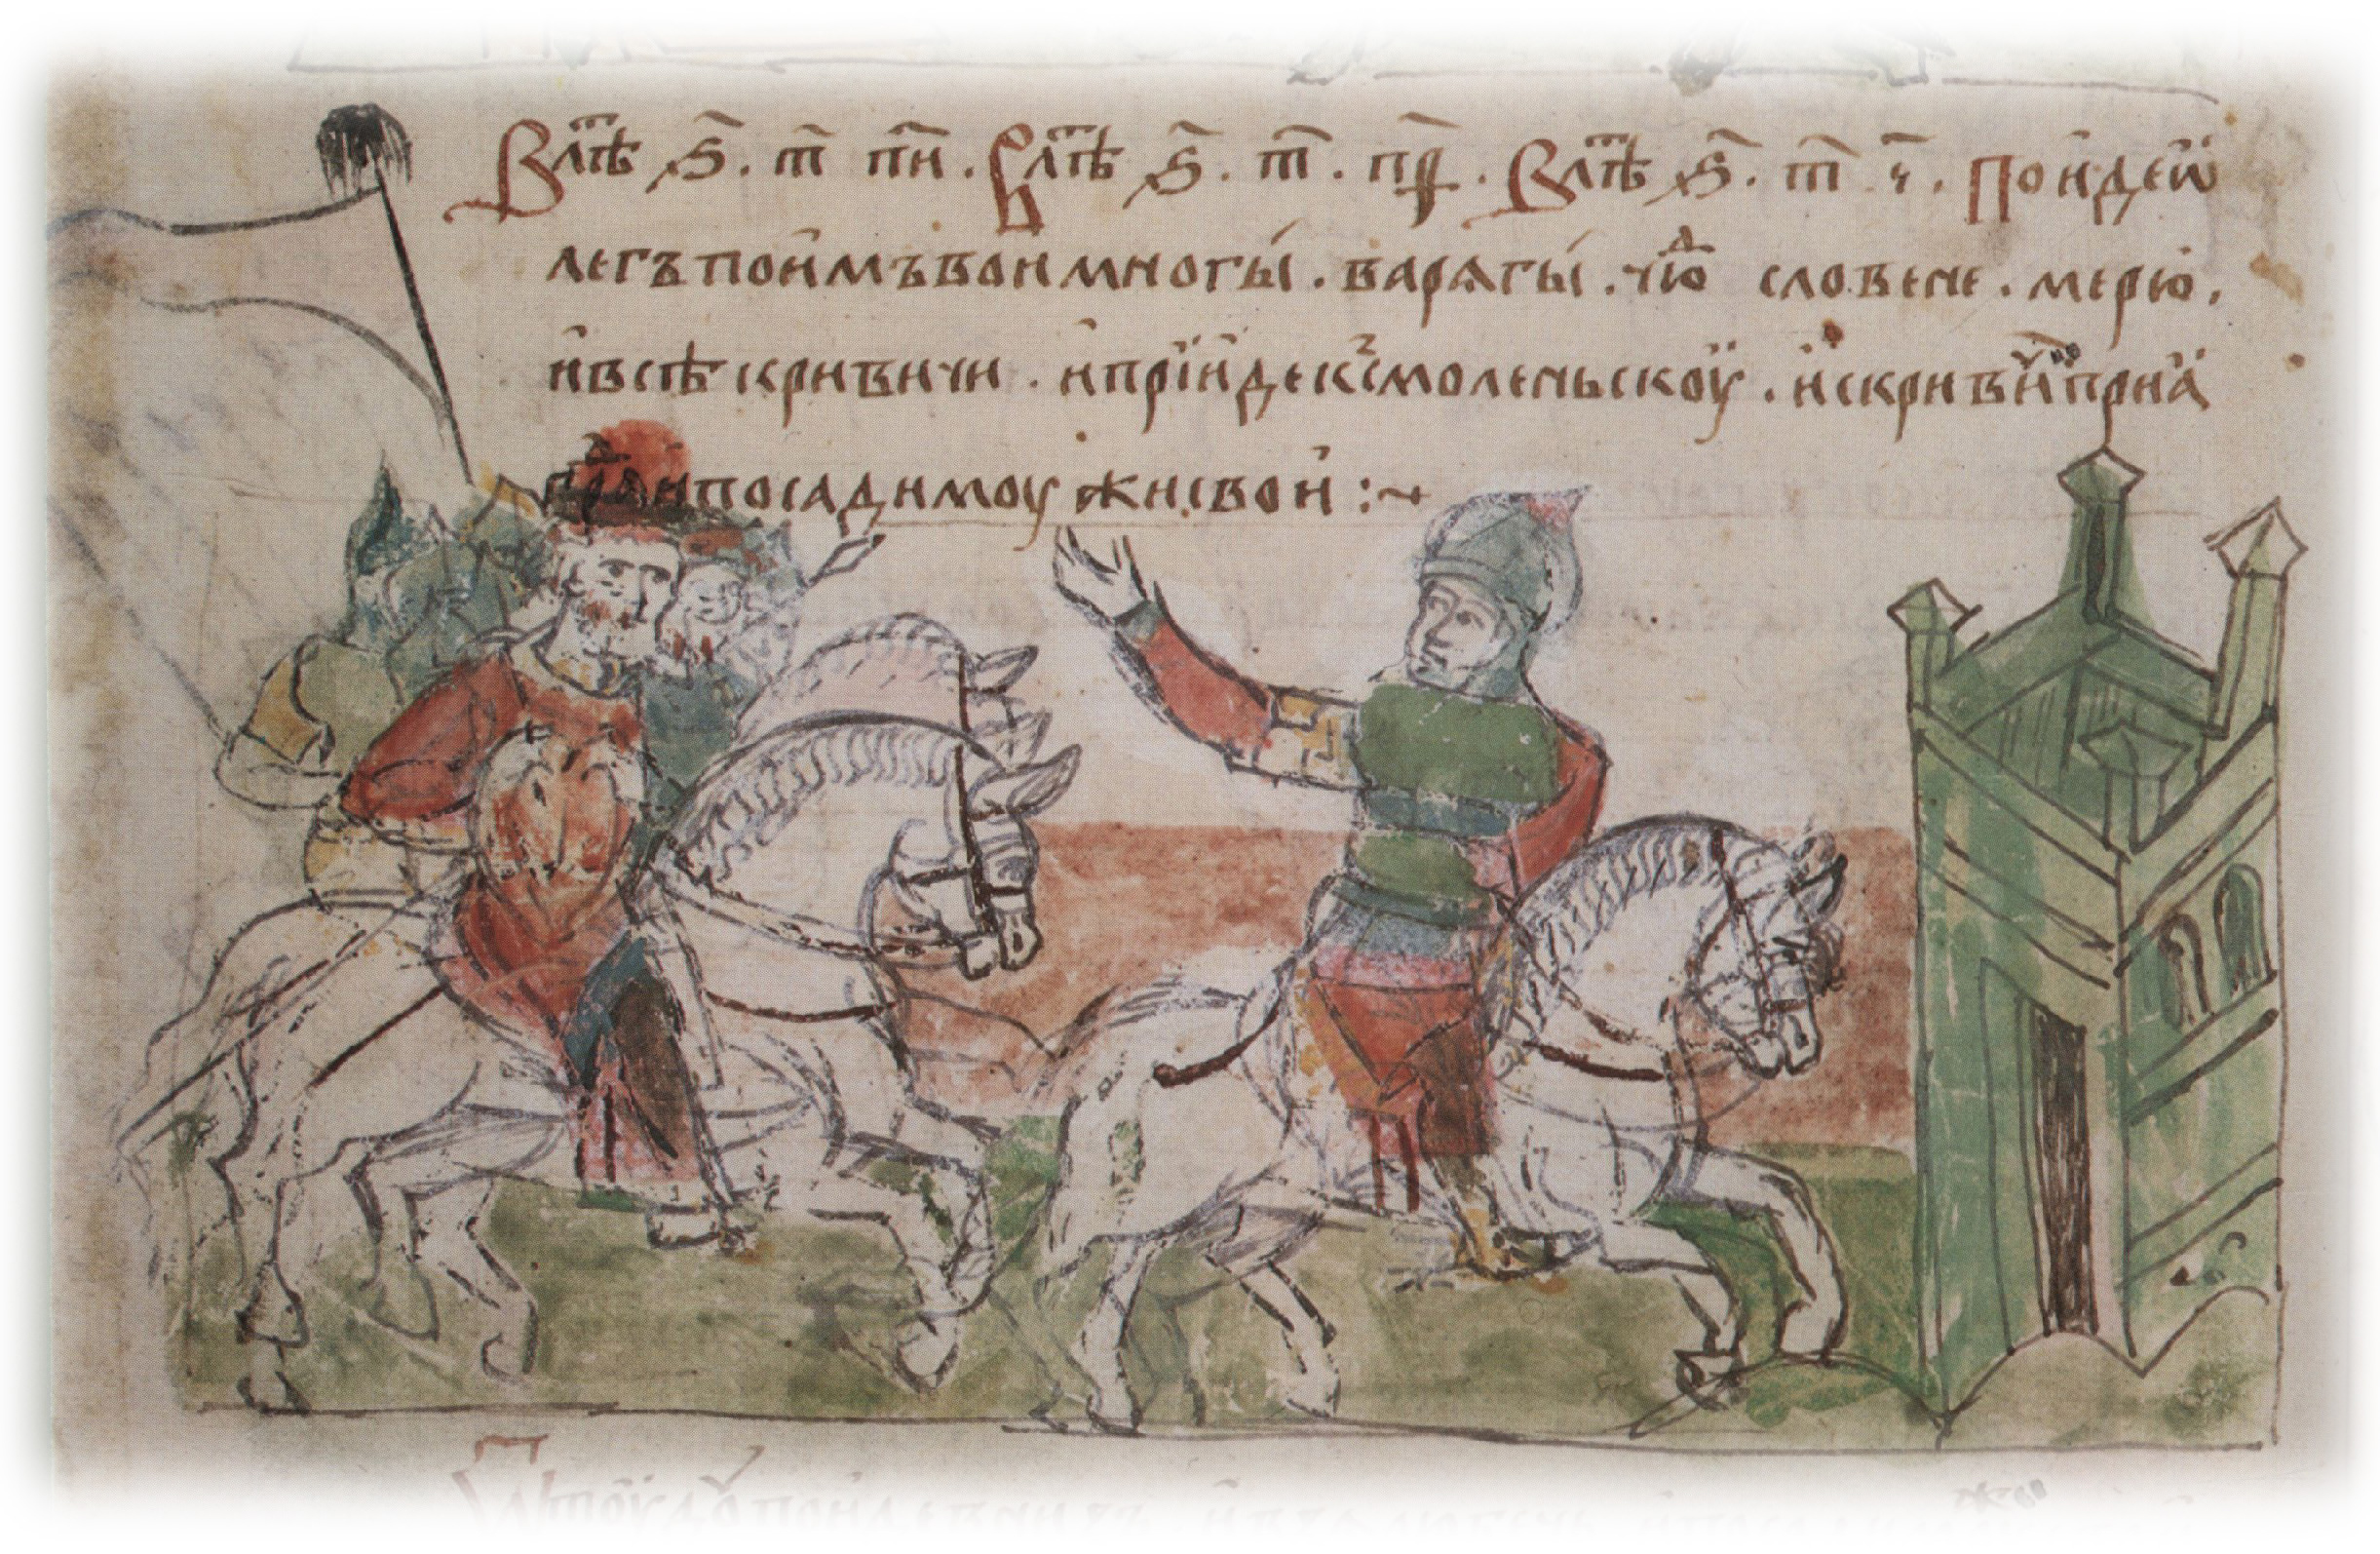 В лѣт ѕ҃. т҃ п҃и. В лѣт ѕ҃. т҃. п҃ѳ. В лѣт ѕ҃. т҃ ч҃. Поиде ѡ
легъ поимъ вои многы. варѧгы. чюд словене. мерю.
и всѣ кривичи. и прїиде къ смоленьскоу. и с кривичи прїа
град и посади моужи свои :~